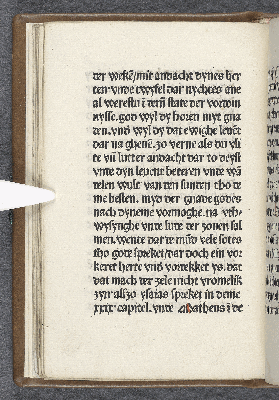 der wekē/mit andacht dynes her
ten vnde twyfel dar nycht es ane
al werestu ī dem state der vordom
nysse. god wyl dy horen myt gna
den. vnd wyl dy dat ewighe leuēt
dar na gheuē. zo verne als du vli
te vn̄ lutter andacht dar to deyst
vnte dyn leuent beteren vnte wā
telen wult van den sunten tho te
me besten. myd der gnade godes
nach dyneme vormoghe. na
wysynghe vnte lute der zonen sal
men. wente dar te mūd vele sotes
tho gote spreket/dar doch ein vor
keret herte vnd vorrekket ys. dat
dat mach der zele nicht vromelik
zyn alszo ysaias spreket in deme
xxix capitel. vnte Matheus ī de